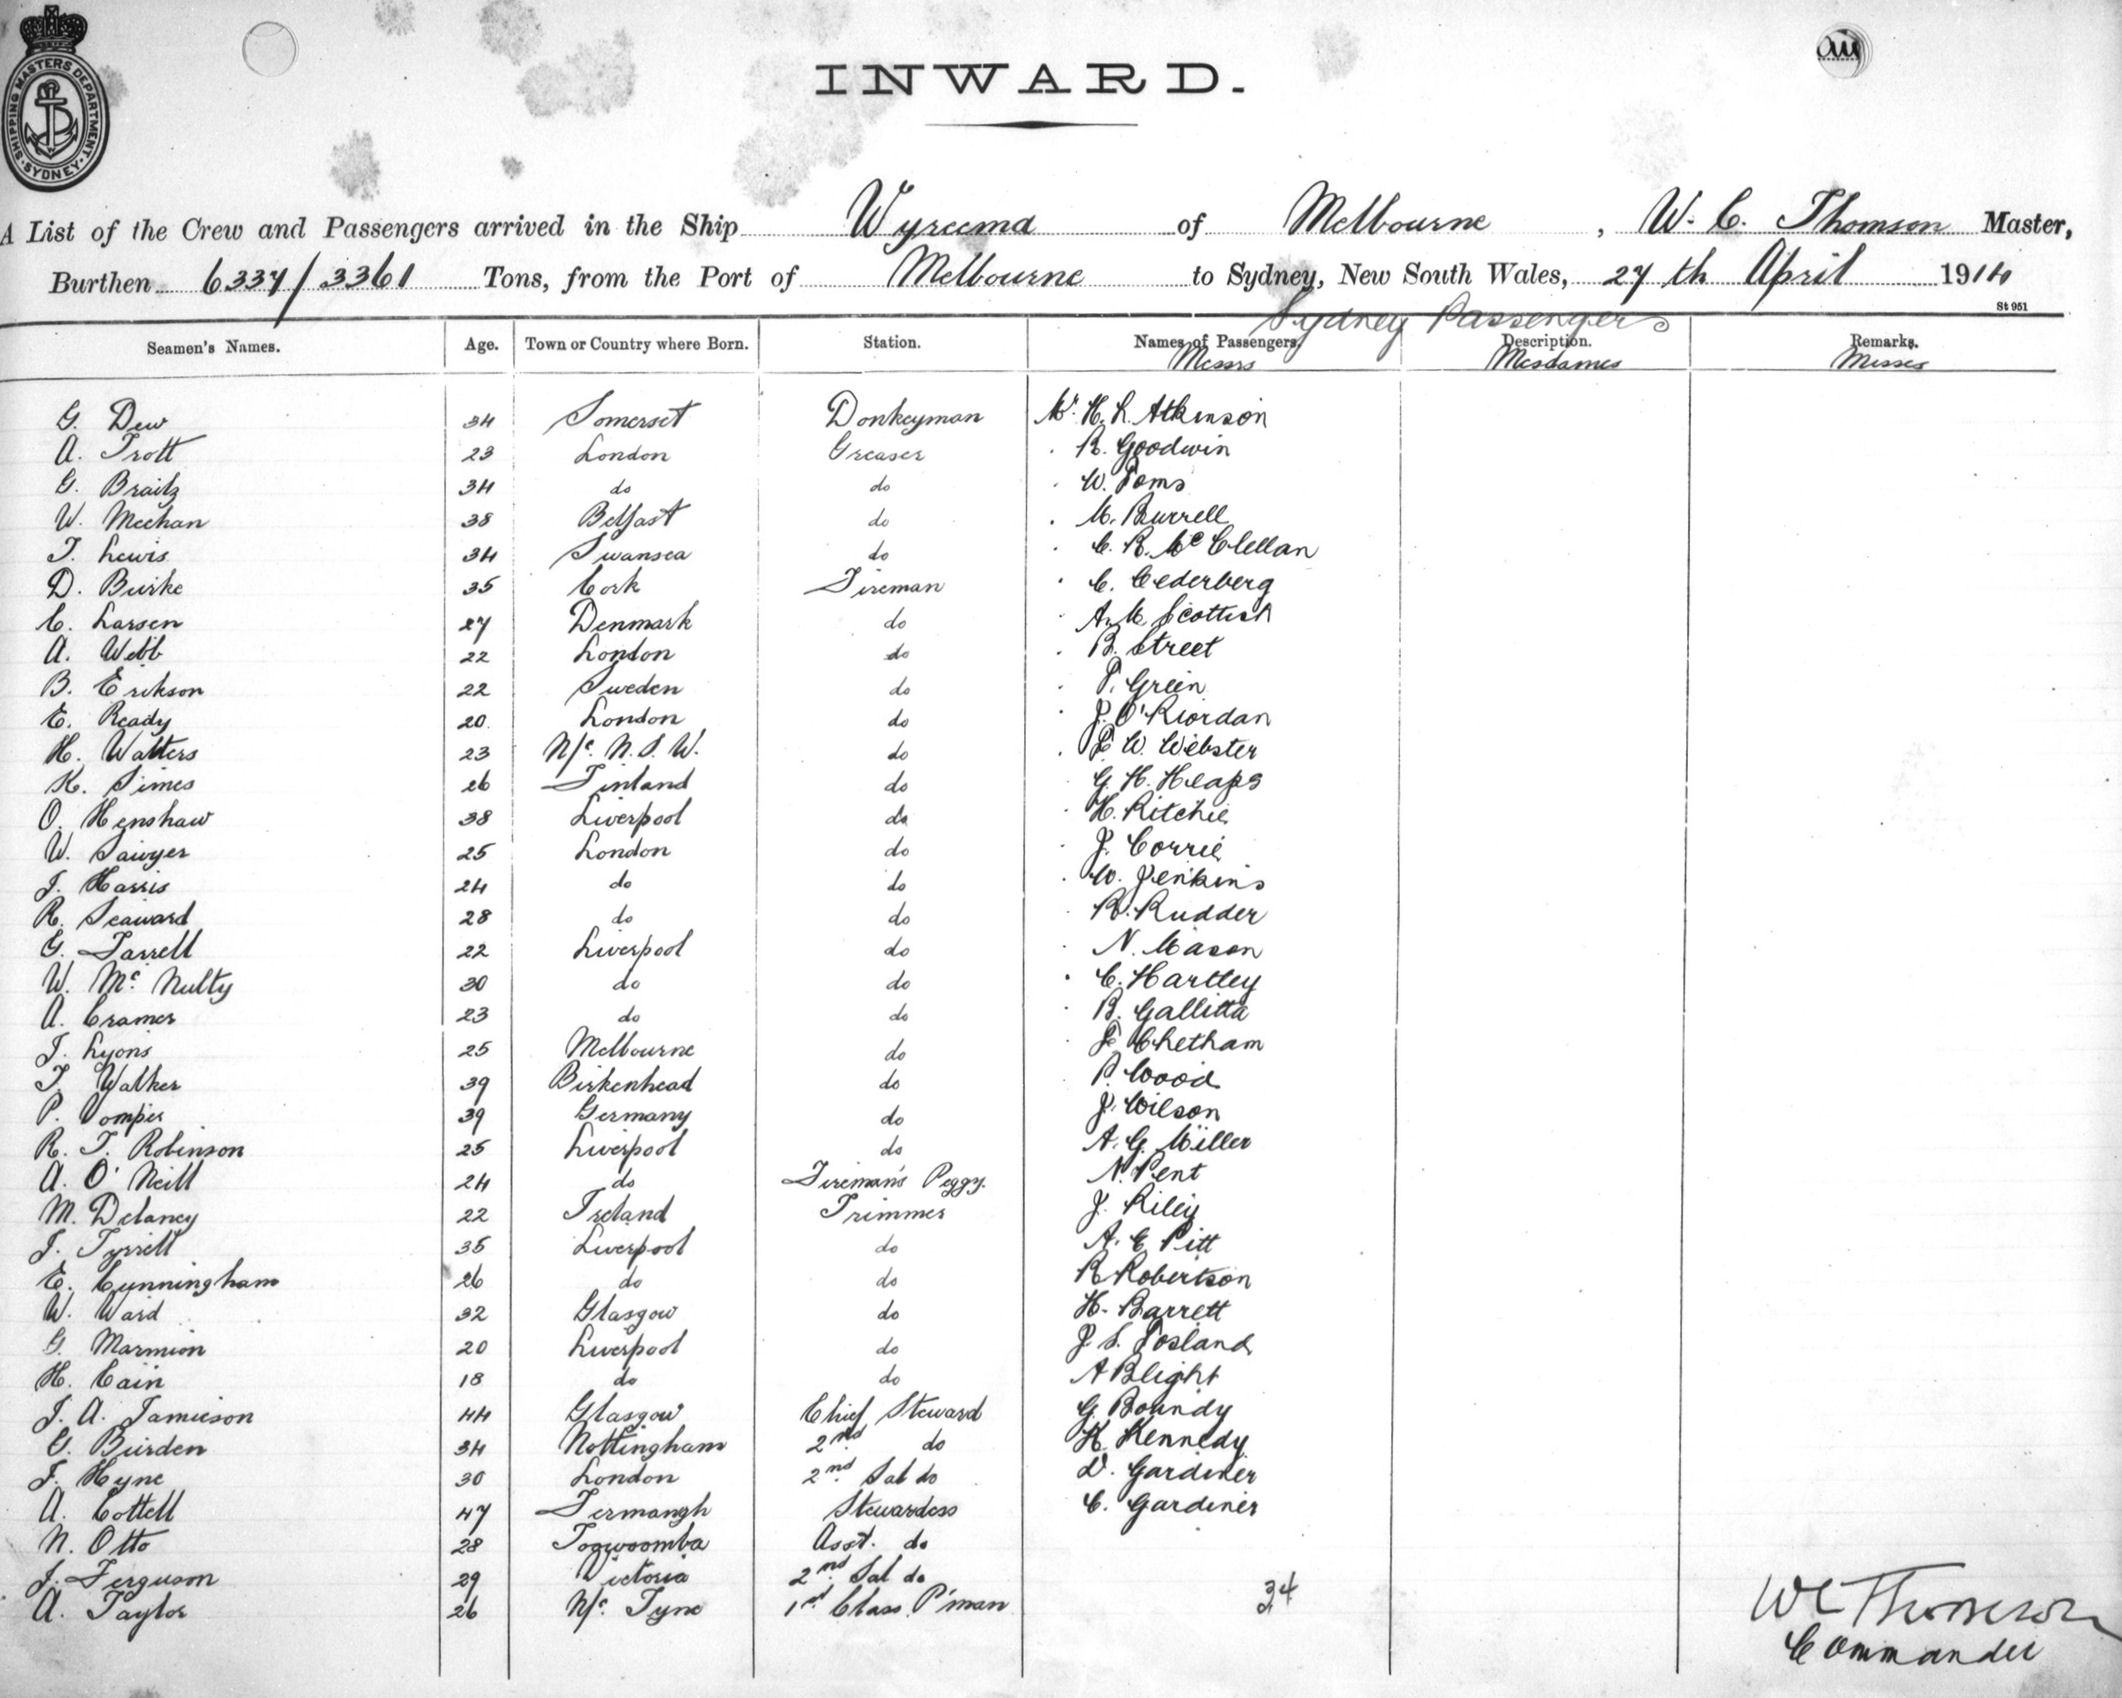 SHIPPING MASTERS DEPARTMENT. SYDNEY.
INWARD.
A List of the Crew and Passengers arrived in the Ship Wyreema of Melbourne, W. C. Thomson Master,
Burthen 6337/3361 Tons, from the Port of Melbourne to Sydney, New South Wales, 27th April 1914
St 951
Sydney Passengers
Seamen's Names. Age. Town or Country where Born. Station. Names of Passengers. Description. Remarks.
Messrs Mesdames Misses
G. Dew 34 Somerset Donkeyman Mr. H. L. Atkinson
A. Trott 23 London Greaser . R. Goodwin
G. Braitz 34 do do . W. Toms
W. Meehan 38 Belfast do . M. Burrell
T. Lewis 34 Swansea do . C. R. McClellan
D. Burke 35 Cork Fireman . C. Cederberg
C. Larsen 27 Denmark do . A. M. Scottish
A. Webb 22 London do . B. Street
B. Erikson 22 Sweden do . T. Green
E. Ready 20. London do . J. O'Riordan
H. Walters 23 N/c. N. S. W. do . E. W. Webster
K. Simes 26 Finland do . G. H. Heaps
O. Henshaw 38 Liverpool do . H. Ritchie
W. Sawyer 25 London do . J. Corrie
J. Harris 24 do do . W. Jenkins
R. Seaward 28 do do . R. Rudder
G. Farrell 22 Liverpool do . N. Mason
W. Mc Nulty 30 do do . C. Hartley
A. Cramer 23 do do . B. Gallitta
J. Lyons 25 Melbourne do . F. Chetham
T. Walker 39 Birkenhead do . P. Wood
P. Pomper 39 Germany do J. Wilson
R. T. Robinson 25 Liverpool do A. G. Miller
A. O'Neill 24 do Fireman's Peggy. N. Pent
M. Delaney 22 Ireland Trimmer J. Riley
J. Tyrrell 35 Liverpool do A. E Pitt
E. Cunningham 26 do do R Robertson
W. Ward 32 Glasgow do H. Barrett
G. Marmion 20 Liverpool do J. S. Posland
H. Cain 18 do do A Blight
J. A. Jamieson 44 Glasgow Chief Steward G. Boundy
G. Burden 34 Nottingham 2nd do K. Kennedy
F. Hyne 30 London 2nd Sal do D. Gardiner
A. Cottell 47 Fermangh Stewardess C. Gardiner
N. Otto 28 Toowoomba Asst. do
J. Ferguson 29 Victoria 2nd Sal do
A. Taylor 26 N/c. Tyne 1st Class P'man 34
W C Thomson
Commander